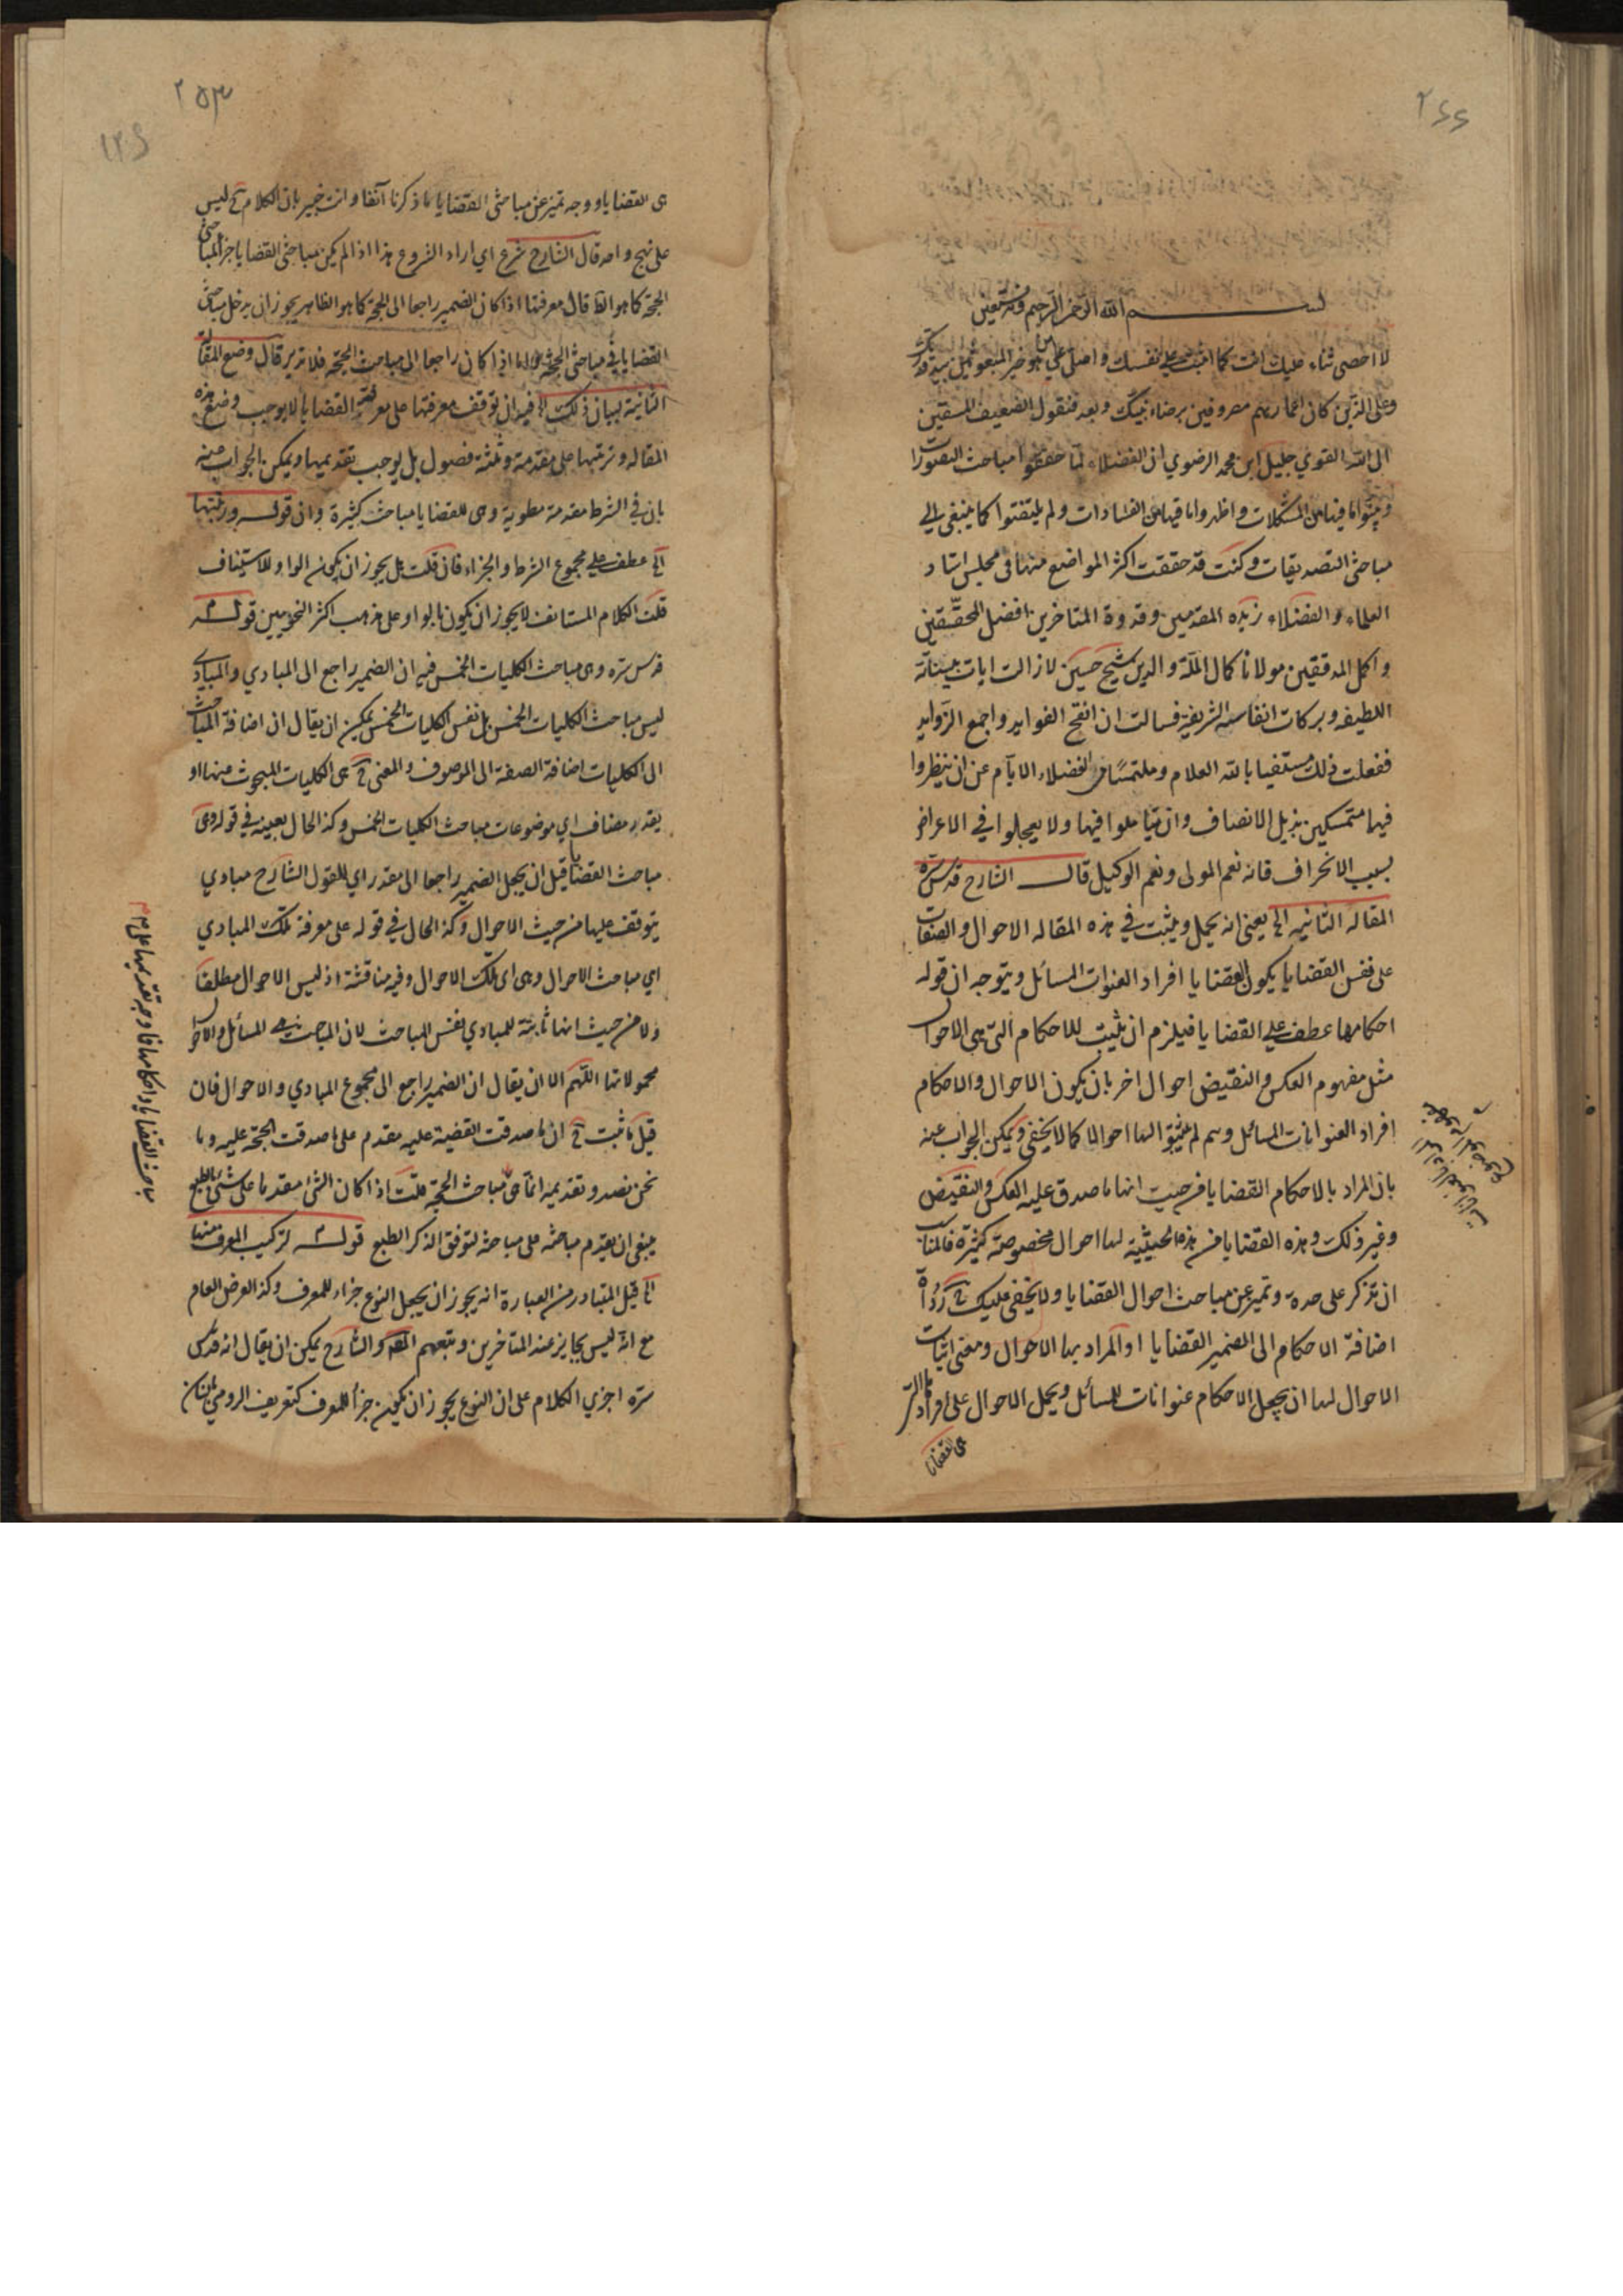 ٢٦٦
بسم الله الرحمن الرحيم وبه نستعين
لا احصى ثناء عليك انت كما اثنيت على نفسك واصلى على من هو خير المبعوثين
وعلى الذين كان اعمارهم مصروفين برضاء نبيك وبعد فنقول الضعيف المستعين
الى الله القوي جليل ابن محمد الرضوي ان الفضلاء لما حققوا مباحث التصورات
وبينوا ما فيها من المشكلات واظهروا ما فيها من الفسادات ولم يلتفتوا كما ينبغي الى
مباحث التصديقات وكنت قد حققت اكثر المواضع منها في مجلس استاد
العلماء والفضلاء زبده المقدمين وقدوة المتاخرين افضل المحققين
واكمل المدققين مولانا كمال الملة والدين شيخ حسين لا زالت ايات بيناته
اللطيفه وبركات انفاسه الشريفة فسالت ان افتح الفوايد واجمع الزوايد
ففعلت ذلك مستغنيا بالله العلام وملتمسا من الفضلاء الايام عن ان ينظروا
فيها متمسكين بذيل الانصاف وان يتاملوا فيها ولا يعجلوا في الاعراض
بسبب الانحراف فانه نعم المولى ونعم الوكيل قال الشارح قدس سره
المقاله الثانيه الخ يعني انه يحمل ويثبت في هذه المقاله الاحوال والصفات
على نفس القضايا يكون القضايا افراد العنوات المسائل ويتوجه ان قوله
احكامها عطف على القضايا فيلزم ان يثبت للاحكام التي هي الاحوال
مثل مفهوم العكس والنقيض احوال اخر بان يكون الاحوال والاحكام
افراد العنوانات المسائل وهم لم يثبتوا لها احوالا كما لا يخفى ويمكن الجواب عنه
بان المراد بالاحكام القضايا من حيث انها ما صدق عليه العكس والنقيض
وغير ذلك وهذه القضايا من هذه الحيثية لها احوال مخصوصة كثيرة فالمناسب
ان تذكر على حدة وتميز عن مباحث احوال القضايا ولا يخفى عليك ح
اضافة الاحكام الى الضمير القضايا او المراد بها الاحوال ومعنى اثبات
الاحوال لها ان يجعل الاحكام عنوانات للمسائل ويحمل الاحوال على افراد
هي القضايا
٢٥٣
١٢٦
هي القضايا ووجه تميز عن مباحث القضايا ما ذكرنا آنفا وانت خبير بان الكلام ح ليس
على نهج واحد قال الشارح شرع اي اراد الشروع هذا اذا لم يكن مباحث القضايا جزء المباحث
الحجة كما هو الظ قال معرفتها اذا كان الضمير راجعا الى الحجة كما هو الظاهر يجوز ان يدخل مباحث
القضايا في مباحث الحجة واما اذا كان راجعا الى مباحث الحجة فلا تدبر قال وضع المقالة
الثانية لبيان ذلك الخ فيه ان توقف معرفتها على معرفة القضايا لا يوجب وضع هذه
المقاله وترتيبها على مقدمة وثلثة فصول بل يوجب تقديمها ويمكن الجواب عنه
بان في الشرط مقدمة مطوية وهي للقضايا مباحث كثيرة وان قوله ورتبتها
الخ عطف على مجموع الشرط والجزاء فان قلت بل يجوز ان يكون الواو للاستيناف
قلت الكلام المستانف لا يجوز ان يكون بالواو على مذهب اكثر النحويين قوله
قدس سره وهي مباحث الكليات الخمس فيه ان الضمير راجع الى المبادي والمبادي
ليس مباحث الكليات الخمس بل نفس الكليات الخمس يمكن ان يقال ان اضافة المباحث
الى الكليات اضافة الصفة الى الموصوف والمعنى ح هي الكليات المبحوث عنها او
يقدر مضاف اي موضوعات مباحث الكليات الخمس وكذا الحال بعينه في قوله وهي
مباحث القضايا قيل ان يجعل الضمير راجعا الى مقدر اي للقول الشارح مبادي
يتوقف عليها من حيث الاحوال وكذا الحال في قوله على معرفة تلك المبادي
اي مباحث الاحوال وهي اي تلك الاحوال وفيه مناقشة اذ ليس الاحوال مطلقا
ولا من حيث انها ثابتة للمبادي نفس المباحث لان المباحث هي المسائل والاحوال
محمولاتها اللهم الا ان يقال ان الضمير راجع الى مجموع المبادي والاحوال فان
قيل ما ثبت ح ان ما صدقت القضية عليه مقدم على ما صدقت الحجة عليه وما
نحن بصدد تقديمه انما هي مباحث الحجة قلت اذا كان الشئ مقدما على شئ بالطبع
ينبغى ان يقدم مباحثه على مباحثه لتوفق الذكر الطبع قوله لتركيب المعرف منها
الخ قيل المتبادر من العبارة انه يجوز ان يجعل النوع جزاء للمعرف وكذا العرض العام
مع انه ليس بجايز عند المتاخرين وتبعهم المصه والشارح يمكن ان يقال انه قدس
سره اجري الكلام على ان النوع يجوز ان يكون جزأ للمعرف كتعريف الرومي
مباحث القضايا واحكامها فاوجه تقديمها على